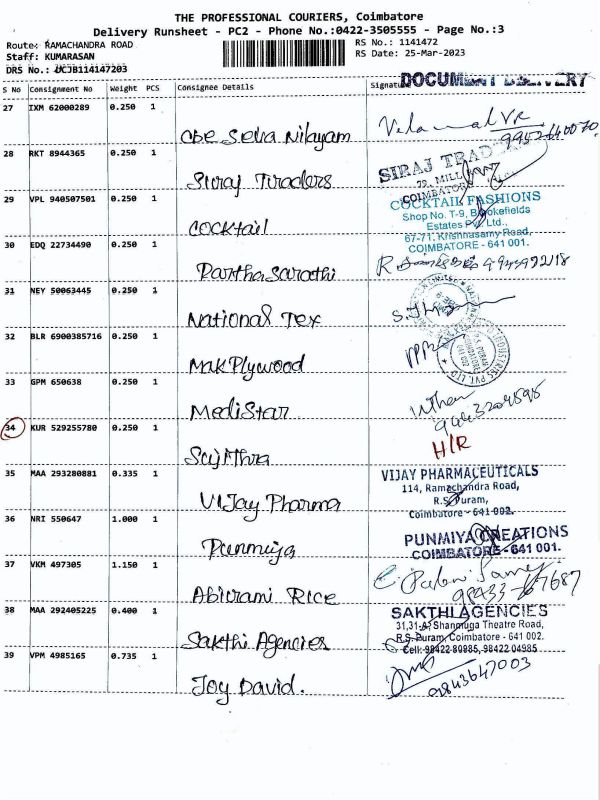 THE PROFESSIONAL COURIERS, Coimbatore
Delivery Runsheet - PC2 - Phone No.:0422-3505555 - Page No.:3
Route: RAMACHANDRA ROAD
Staff: KUMARASAN
DRS No.: UCJB114147203
RS No.: 1141472
RS Date: 25-Mar-2023
DOCUMENT DELIVERY
S No Consignment No Weight PCS Consignee Details
27 IXM 62000289 0.250 1
CBE Selva Nilayam
28 RKT 8944365 0.250 1
Siraj Traders
SIRAJ
COIMBATORE
29 VPL 940507501 0.250 1
Cocktail
COCKTAIL FASHIONS
Shop No. T-9, Brookefields
Estates Pvt. Ltd.,
67-71, Krishnasamy Road,
COIMBATORE - 641 001.
30 EDQ 22734490 0.250 1
Parthasarathi
31 NEY 50063445 0.250 1
National Tex
32 BLR 6900385716 0.250 1
Mak Plywood
33 GPM 650638 0.250 1
MediStar
34 KUR 529255780 0.250 1
Sujithra
H/R
35 MAA 293280881 0.335 1
Vijay Pharma
VIJAY PHARMACEUTICALS
114, Ramachandra Road,
R.S. Puram,
Coimbatore - 641 002.
36 NRI 550647 1.000 1
Punmiya
PUNMIYA CREATIONS
COIMBATORE - 641 001.
37 VKM 497305 1.150 1
Abirami Rice
38 MAA 292405225 0.400 1
Sakthi Agencies
SAKTHI AGENCIES
31,31-A, Shanmuga Theatre Road,
R.S. Puram, Coimbatore - 641 002.
Cell: 98422 80985, 98422 04985
39 VPM 4985165 0.735 1
Joy David.
9843647003